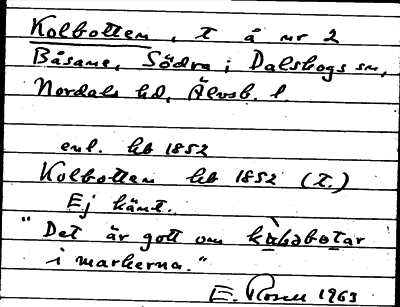 Kolbotten, t å nr 2
Båsane, Södra i Dalskogs sn,
Nordals hd, Älvsb. l.
enl. hb 1852
Kolbotten hb 1852 (t.)
Ej känt.
"Det är gott om
i markerna."
E. 1963